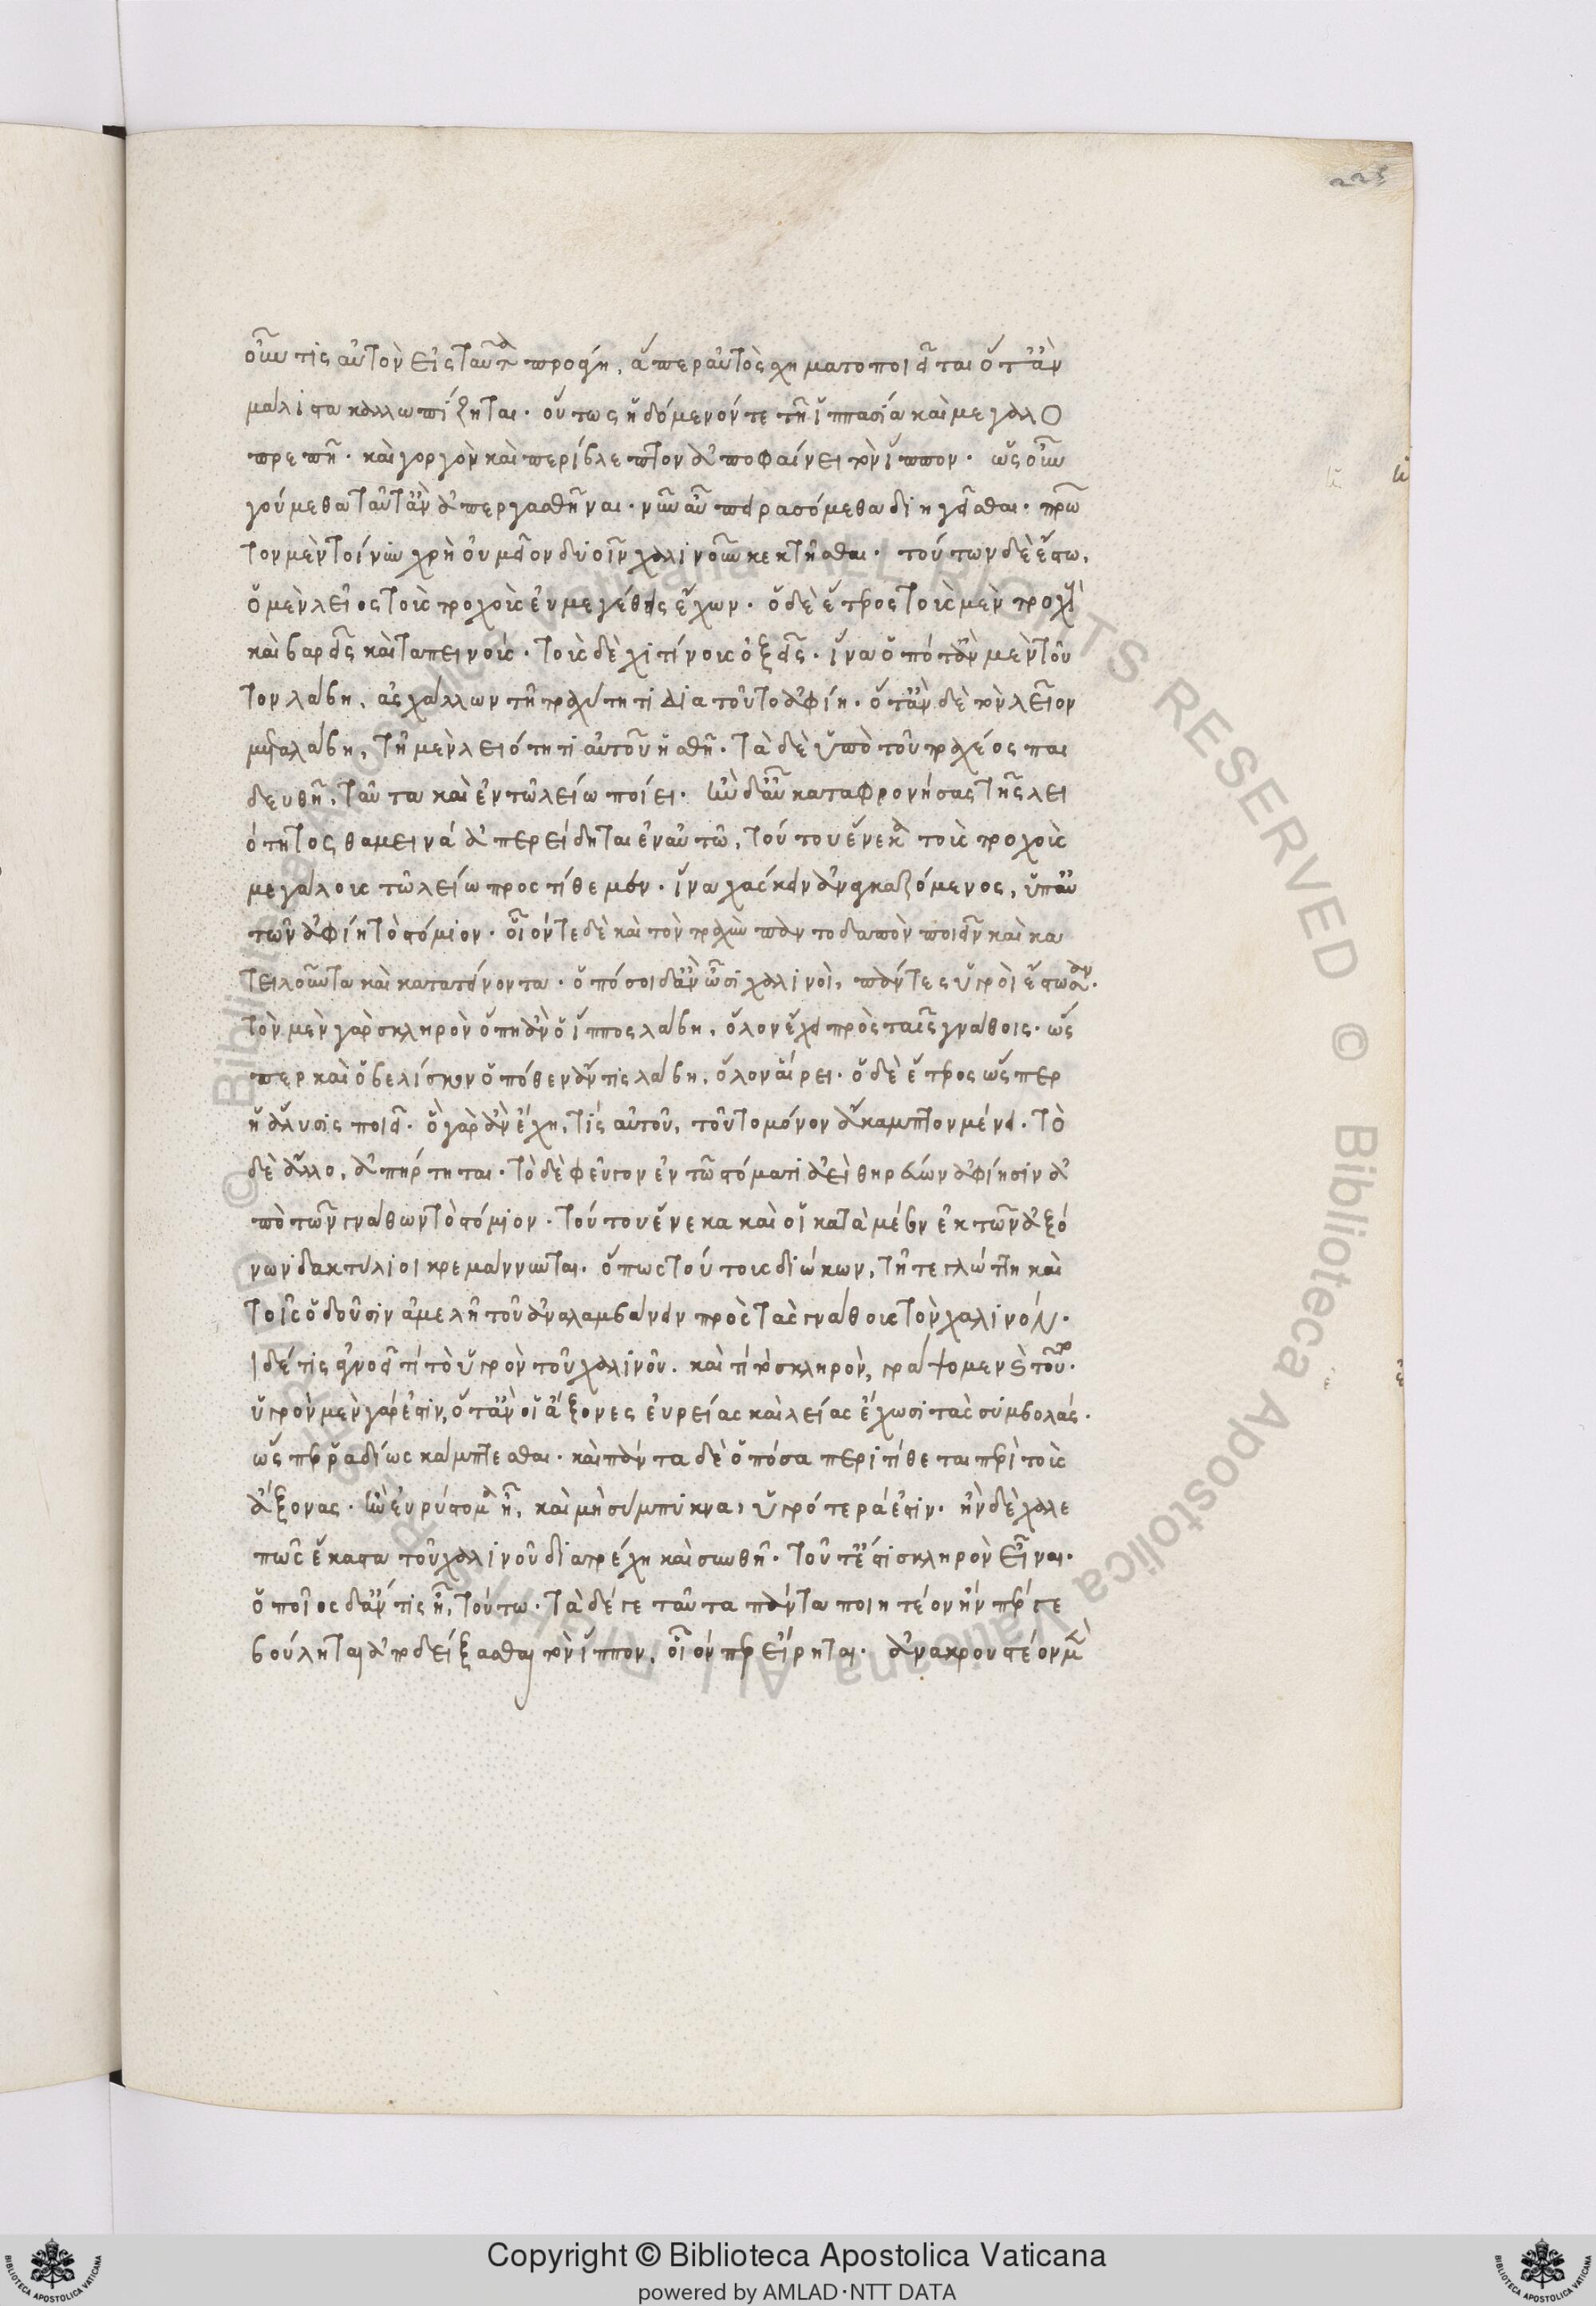 225
οὖν τις αὐτὸν εἰς ταῦτα προάγῃ, ἅπερ αὐτὸς σχηματοποιεῖται ὅταν
μάλιστα καλλωπίζηται· οὕτως ἡδόμενόν τε τῇ ἱππασίᾳ καὶ μεγαλο
πρεπῆ· καὶ γοργὸν καὶ περίβλεπτον ἀποφαίνει τὸν ἵππον· ὡς οὖν
γούμεθα ταῦτ' ἂν ἀπεργασθῆναι· νῦν αὖ πειρασόμεθα διηγεῖσθαι· πρῶ
τον μὲν τοίνυν χρὴ οὐ μεῖον δυοῖν χαλινοῦν κεκτῆσθαι· τούτων δὲ ἔστω,
ὁ μὲν λεῖος τοὺς τροχοὺς εὐμεγέθεις ἔχων· ὁ δὲ ἕτερος τοὺς μὲν τροχοὺς
καὶ βαρεῖς καὶ ταπεινούς· τοὺς δὲ χιτίνους ὀξεῖς· ἵνα ὁπόταν μὲν τοῦ
τον λάβῃ, ἀσχάλλων τῇ τραχύτητι διὰ τοῦτο ἀφίῃ· ὅταν δὲ τὸν λεῖον
μεταλάβῃ, τῇ μὲν λειότητι αὐτοῦ ἡσθῇ· τὰ δὲ ὑπὸ τοῦ τραχέος παι
δευθῇ, ταῦτα καὶ ἐν τῷ λείῳ ποιεῖ· ἢν δ' αὖ καταφρονήσας τῆς λει
ότητος θαμεινὰ ἀπερείδηται ἐν αὐτῷ, τούτου ἕνεκα τοὺς τροχοὺς
μεγάλους τῷ λείῳ προστίθεμεν· ἵνα χάσκειν ἀναγκαζόμενος, ὑπ' αὐ
τῶν ἀφίῃ τὸ στόμιον· οἷόν τε δὲ καὶ τὸν τραχὺν παντοδαπὸν ποιεῖν καὶ κα
τειλοῦντα καὶ κατατείνοντα· ὁπόσοι δ' ἂν ὦσι χαλινοὶ, πάντες ὑγροὶ ἔστωσαν·
τὸν μὲν γὰρ σκληρὸν ὅπῃ ἂν ὁ ἵππος λάβῃ, ὅλον ἔχει πρὸς ταῖς γνάθοις· ὥς
περ καὶ ὀβελίσκον ὁπόθεν ἄν τις λάβῃ, ὅλον αἴρει· ὁ δὲ ἕτερος ὥσπερ
ἡ ἅλυσις ποιεῖ· ὃ γὰρ ἂν ἔχῃ, τίς αὐτοῦ, τοῦτο μόνον ἄκαμπτον μένει· τὸ
δὲ ἄλλο, ἀπήρτηται· τὸ δὲ φεῦγον ἐν τῷ στόματι ἀεὶ θηρεύων ἀφίησιν ἀ
πὸ τῶν γνάθων τὸ στόμιον· τούτου ἕνεκα καὶ οἱ κατὰ μέσον ἐκ τῶν ἀξό
νων δακτύλιοι κρεμάννυνται· ὅπως τούτους διώκων, τῇ τε γλώττῃ καὶ
τοῖς ὀδοῦσιν ἀμελῇ τοῦ ἀναλαμβάνειν πρὸς τὰς γνάθους τὸν χαλινόν·
ἰ δέ τις ἀγνοεῖ τί τὸ ὑγρὸν τοῦ χαλινοῦ· καὶ τί τὸ σκληρὸν, γράψομεν καὶ τοῦτο·
ὑγρὸν μὲν γάρ ἐστιν, ὅταν οἱ ἄξονες εὐρείας καὶ λείας ἔχωσι τὰς συμβολάς·
ὥσπερ ῥᾳδίως κάμπτεσθαι· καὶ πάντα δὲ ὁπόσα περιτίθεται περὶ τοὺς
ἄξονας· ἢν εὐρύστομα ᾖ, καὶ μὴ σύμπυκνα, ὑγρότερά ἐστιν· ἢν δὲ χαλε
πῶς ἕκαστα τοῦ χαλινοῦ διατρέχῃ καὶ συνθῇ· τοῦτ' ἔστι σκληρὸν εἶναι·
ὁποῖος δ' ἄν τις ᾖ, τούτῳ· τὰ δέ γε ταῦτα πάντα ποιητέον ἤν πέρ γε
βούληται ἀποδείξασθαι τὸν ἵππον, οἷόν περ εἴρηται· ἀνακρουστέον μὲν
Copyright © Biblioteca Apostolica Vaticana
powered by AMLAD·NTT DATA